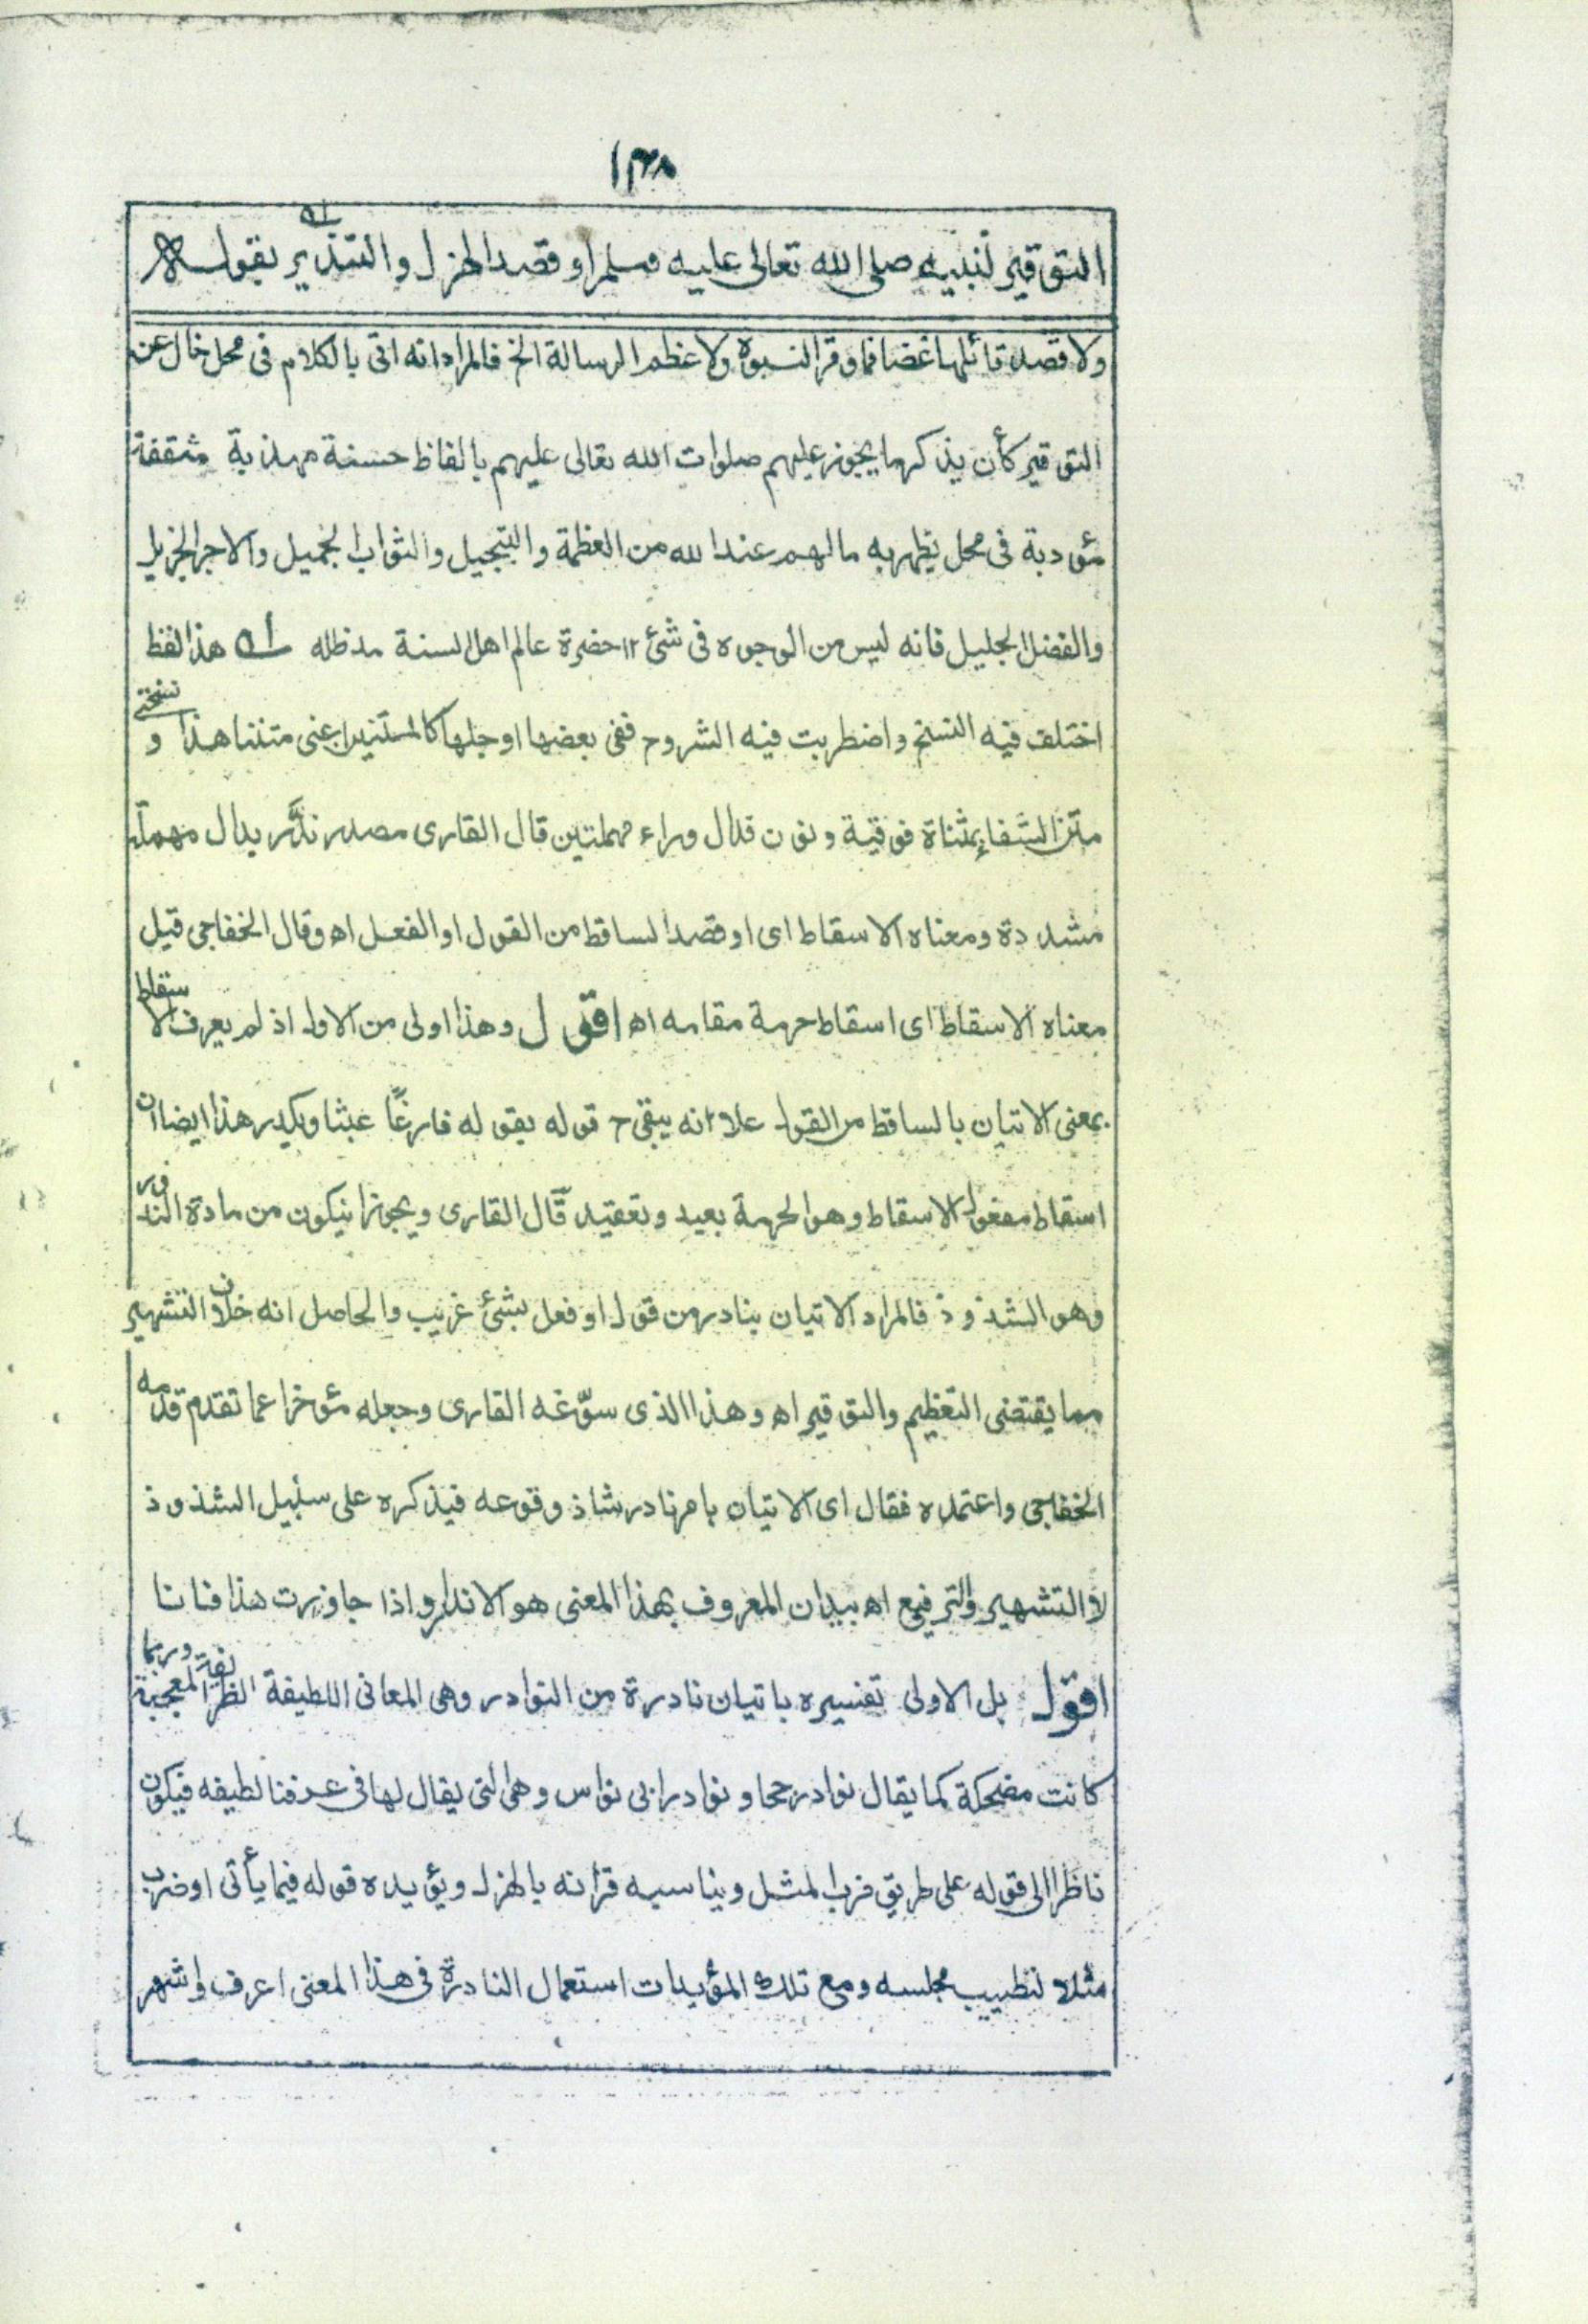 ١٣٨
التوقير لنبيه صلى الله تعالى عليه وسلم او قصد الهزل والتندير بقوله
ولا قصد قائلها غضا فما وقر النبوة ولا عظم الرسالة الخ فالمراد انه اتى بالكلام فى محل خال عن
التوقير كأن يذكر ما يجوز عليهم صلوات الله تعالى عليهم بالفاظ حسنة مهذبة مثقفة
مؤدبة فى محل يظهر به ما لهم عند الله من العظمة والتبجيل والثواب الجميل والاجر الجزيل
والفضل الجليل فانه ليس من الوجوه فى شئ ١٢ حضرة عالم اهل السنة مدظله ١ه هذا لفظ
اختلف فيه النسخ واضطربت فيه الشروح ففى بعضها او جلها كالتندير اعنى متننا هذا و نسختى
متن الشفاء بمثناة فوقية ونون فدال وراء مهملتين قال القارى مصدر ندّر بدال مهملة
مشددة ومعناه الاسقاط اى او قصد الساقط من القول او الفعل اه وقال الخفاجى قيل
معناه الاسقاط اى اسقاط حرمة مقامه اه اقول وهذا اولى من الاول اذ لم يعرف الاسقاط
بمعنى الاتيان بالساقط من القول علا انه يبقى ح قوله بقوله فارغًا عبثا ويكدر هذا ايضا ان
اسقاط مفعول الاسقاط وهو الحرمة بعيد وتعقيد قال القارى ويجوز ان يكون من مادة الندور
وهو الشذوذ فالمراد الاتيان بنادر من قول او فعل بشئ غريب والحاصل انه خلاف التشهير
مما يقتضى التعظيم والتوقير اه وهذا الذى سوّغه القارى وجعله مؤخرا عما تقدم قدمه
الخفاجى واعتمده فقال اى الاتيان بامر نادر شاذ وقوعه فيذكره على سبيل الشذوذ
لا التشهير والترفيع اه بيد ان المعروف بهذا المعنى هو الاندار واذا جاوزت هذا فانا
اقول بل الاولى تفسيره باتيان نادرة من النوادر وهى المعانى اللطيفة الظرايفة المعجبة وربما
كانت مضحكة كما يقال نوادر جحا ونوادر ابى نواس وهى التى يقال لها فى عرفنا لطيفه فيكون
ناظرا الى قوله على طريق ضرب المثل ويناسبه قرانه بالهزل ويؤيده قوله فيما يأتى او ضرب
مثلا لتطييب مجلسه ومع تلك المؤيدات استعمال النادرة فى هذا المعنى اعرف واشهر